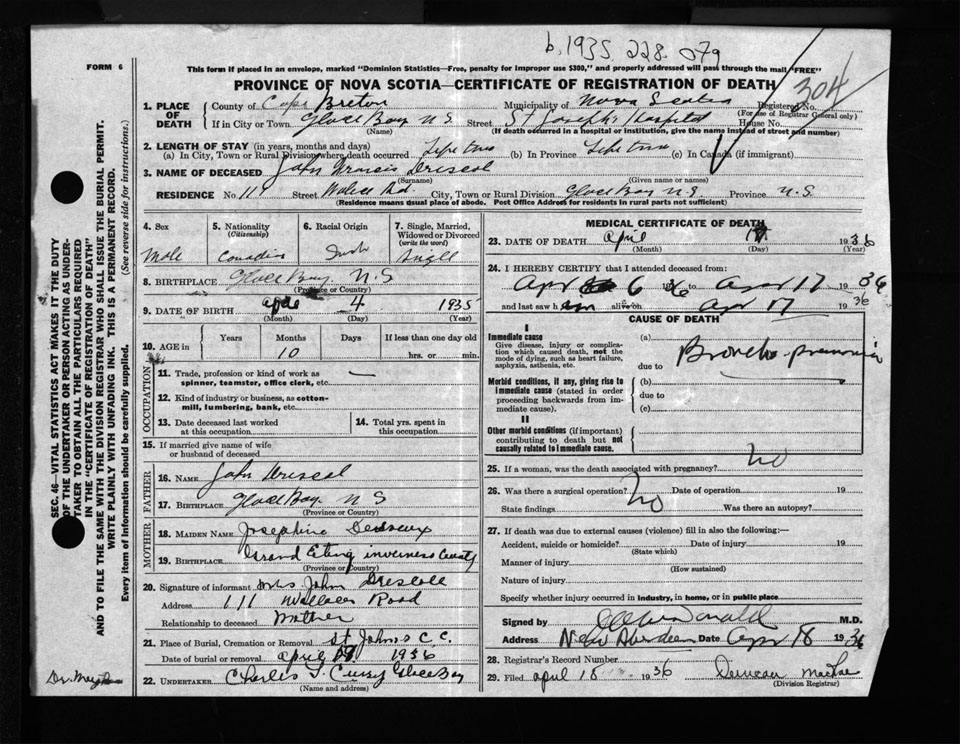 b. 1935 228. 079
FORM 6
This form if placed in an envelope, marked "Dominion Statistics—Free, penalty for improper use $300," and properly addressed will pass through the mail "FREE"
PROVINCE OF NOVA SCOTIA—CERTIFICATE OF REGISTRATION OF DEATH
304
1. PLACE OF DEATH
County of Cape Breton Municipality of Nova Scotia Registered No.
(For use of Registrar General only)
If in City or Town Glace Bay N S Street St Joseph's Hospital House No.
(Name) (If death occurred in a hospital or institution, give the name instead of street and number)
2. LENGTH OF STAY (in years, months and days)
(a) In City, Town or Rural Division where death occurred Life time (b) In Province Life time (c) In Canada (if immigrant)
3. NAME OF DECEASED John Francis Driscol
(Surname) (Given name or names)
RESIDENCE No. 11 Street Wallace Rd City, Town or Rural Division Glace Bay N.S. Province N.S
(Residence means usual place of abode. Post Office Address for residents in rural parts not sufficient)
4. Sex
Male
5. Nationality (Citizenship)
Canadian
6. Racial Origin
Irish
7. Single, Married, Widowed or Divorced (write the word)
Single
8. BIRTHPLACE Glace Bay N.S
(Province or Country)
9. DATE OF BIRTH 4 1935
(Month) (Day) (Year)
10. AGE in Years Months Days If less than one day old
10 hrs. or min.
OCCUPATION
11. Trade, profession or kind of work as spinner, teamster, office clerk, etc. —
12. Kind of industry or business, as cotton-mill, lumbering, bank, etc.
13. Date deceased last worked at this occupation
14. Total yrs. spent in this occupation
15. If married give name of wife or husband of deceased
FATHER
16. NAME John Driscol
17. BIRTHPLACE Glace Bay N S
(Province or Country)
MOTHER
18. MAIDEN NAME Josephine
19. BIRTHPLACE Grand Etang inverness County
(Province or Country)
20. Signature of informant Mrs John Driscoll
Address 111 Wallace Road
Relationship to deceased Mother
21. Place of Burial, Cremation or Removal St Johns C. C.
Date of burial or removal april 1936
22. UNDERTAKER Charles Glace Bay
(Name and address)
MEDICAL CERTIFICATE OF DEATH
23. DATE OF DEATH April 17 1936
(Month) (Day) (Year)
24. I HEREBY CERTIFY that I attended deceased from:
Apr 6 36 to Apr 17 1936
and last saw him alive on Apr 17 1936
CAUSE OF DEATH
I
Immediate cause
Give disease, injury or complication which caused death, not the mode of dying, such as heart failure, asphyxia, asthenia, etc.
(a) Broncho-pneumonia
due to
Morbid conditions, if any, giving rise to immediate cause (stated in order proceeding backwards from immediate cause).
(b)
due to
(c)
II
Other morbid conditions (if important) contributing to death but not causally related to immediate cause.
25. If a woman, was the death associated with pregnancy? no
26. Was there a surgical operation? No Date of operation 19
State findings Was there an autopsy?
27. If death was due to external causes (violence) fill in also the following:—
Accident, suicide or homicide? Date of injury 19
(State which)
Manner of injury
(How sustained)
Nature of injury
Specify whether injury occurred in industry, in home, or in public place
Signed by M.D.
Address New Aberdeen Date Apr 18 1936
28. Registrar's Record Number
29. Filed april 18 1936 Duncan MacRae
(Division Registrar)
SEC. 46—VITAL STATISTICS ACT MAKES IT THE DUTY
OF THE UNDERTAKER OR PERSON ACTING AS UNDER-
TAKER TO OBTAIN ALL THE PARTICULARS REQUIRED
IN THE "CERTIFICATE OF REGISTRATION OF DEATH"
AND TO FILE THE SAME WITH THE DIVISION REGISTRAR WHO SHALL ISSUE THE BURIAL PERMIT.
WRITE PLAINLY WITH UNFADING INK. THIS IS A PERMANENT RECORD.
Every item of information should be carefully supplied. (See reverse side for instructions.)